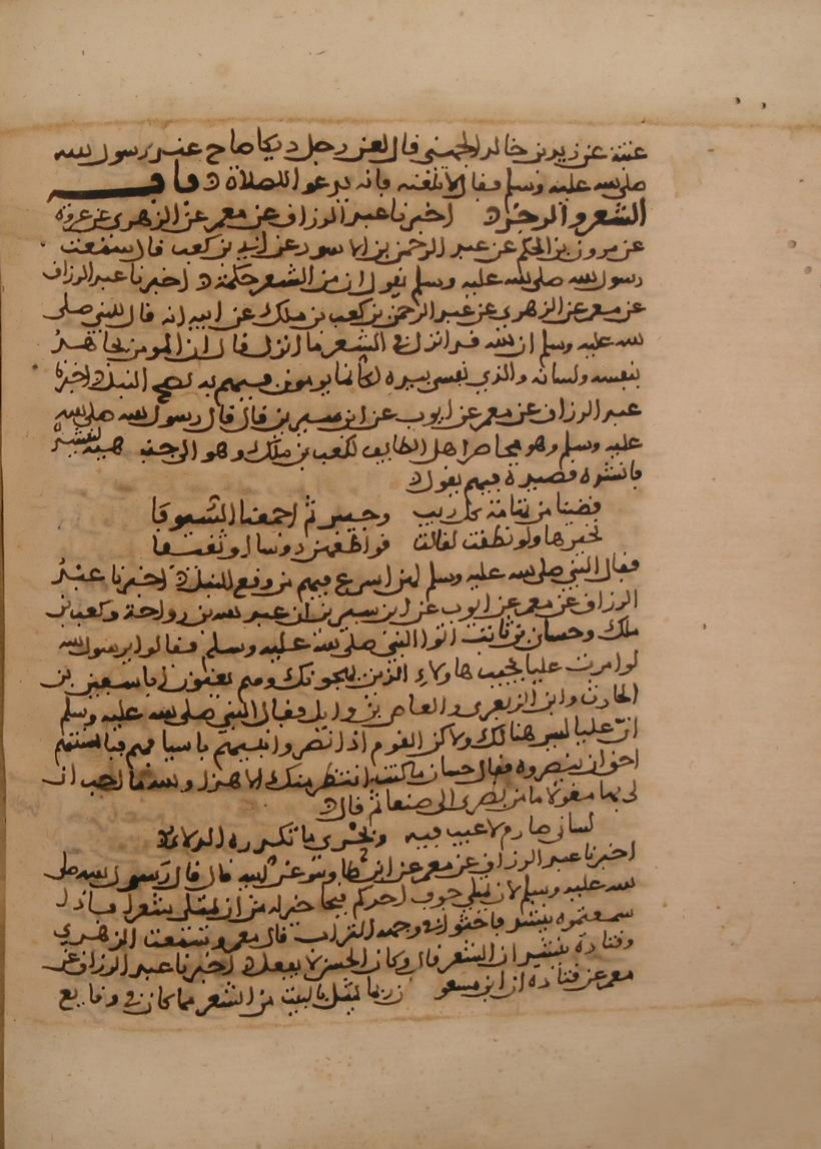 عتبة عن زيد بن خالد الجهني قال لعن رجل ديكا صاح عند رسول الله
صلى الله عليه وسلم فقال لا تلعنه فانه يدعوا للصلاة باب
الشعر والرجز اخبرنا عبد الرزاق عن معمر عن الزهري عن عروة
عن مرون بن الحكم عن عبد الرحمن بن الاسود عن ابي بن كعب قال سمعت
رسول الله صلى الله عليه وسلم يقول ان من الشعر حكمة اخبرنا عبد الرزاق
عن معمر عن الزهري عن عبد الرحمن بن كعب بن ملك عن ابيه انه قال للنبي صلى
الله عليه وسلم ان الله قد انزل في الشعر ما انزل قال ان المومن يجاهد
بنفسه ولسانه والذي نفسي بيده لكانما يرمون فيهم به نضح النبل اخبرنا
عبد الرزاق عن معمر عن ايوب عن ابن سيرين قال قال رسول الله صلى الله
عليه وسلم وهو محاصر اهل الطايف لكعب بن ملك وهو الى جنبه هيه
فانشده قصيدة فيهم يقول
قضينا من تهامة كل ريب وخيبر ثم اجمعنا السيوفا
نخيرها ولو نطقت لقالت قواطعهن دوسا او ثقيفا
فقال النبي صلى الله عليه وسلم لهن اسرع فيهم من وقع النبل اخبرنا عبد
الرزاق عن معمر عن ايوب عن ابن سيرين ان عبد الله بن رواحة وكعب بن
ملك وحسان بن ثابت اتوا النبي صلى الله عليه وسلم فقالوا يرسول الله
لو امرت عليا يجيب هاولاء الذين يهجونك وهم يعنون ابا سفين بن
الحارث وابن الزبعرى والعاص بن وايل فقال النبي صلى الله عليه وسلم
ان عليا ليس هنالك ولاكن القوم اذا نصروا نبيهم باسيافهم فبالسنتهم
احق ان ينصروه فقال حسان ما كنت انتظر منك الا هذا والله ما احب ان
لي بها مقولا ما بين بصرى الى صنعا ثم قال
لساني صارم لا عيب فيه وبحري ما تكدره الدلاء
اخبرنا عبد الرزاق عن معمر عن ابن طاوس عن ابيه قال قال رسول الله صلى
الله عليه وسلم لان يمتلي جوف احدكم قيحا خير له من ان يمتلي شعرا قال
سمعتموه ينشد فاحثوا في وجهه التراب قال معمر وسمعت الزهري
وقتادة ينشدان الشعر قال وكان الحسن لا يفعل اخبرنا عبد الرزاق عن
معمر عن قتادة ان ابن مسعو ربما تمثل بالبيت من الشعر مما كان في وقايع